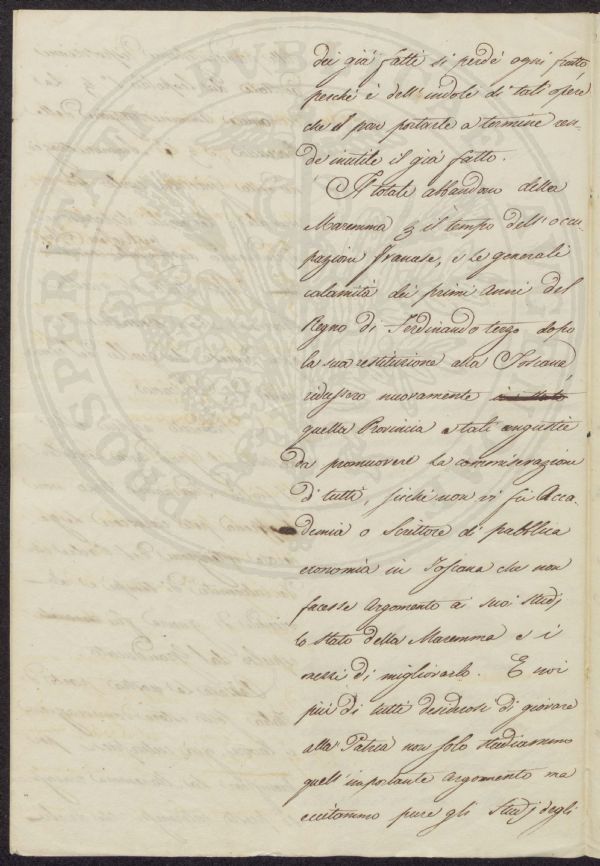 dei già fatti si perdè ogni frutto,
perchè è dell'indole di tali opere
che il non portarle a termine ren-
de inutile il già fatto.
Il totale abbandono della
Maremma il tempo dell'occu-
pazione francese, e le generali
calamità dei primi anni del
Regno di Ferdinando terzo dopo
la sua restituzione alla Toscana,
ridussero nuovamente
quella Provincia a tali angustie
da promuovere la commiserazione
di tutti, sicchè non vi fu Acca-
demia o Scrittore di pubblica
economia in Toscana che non
facesse argomento a' suoi studj
lo stato della Maremma e i
mezzi di migliorarlo. E noi
più di tutti desiderosi di giovare
alla Patria non solo studiammo
quell'importante argomento ma
eccitammo pure gli studj degli